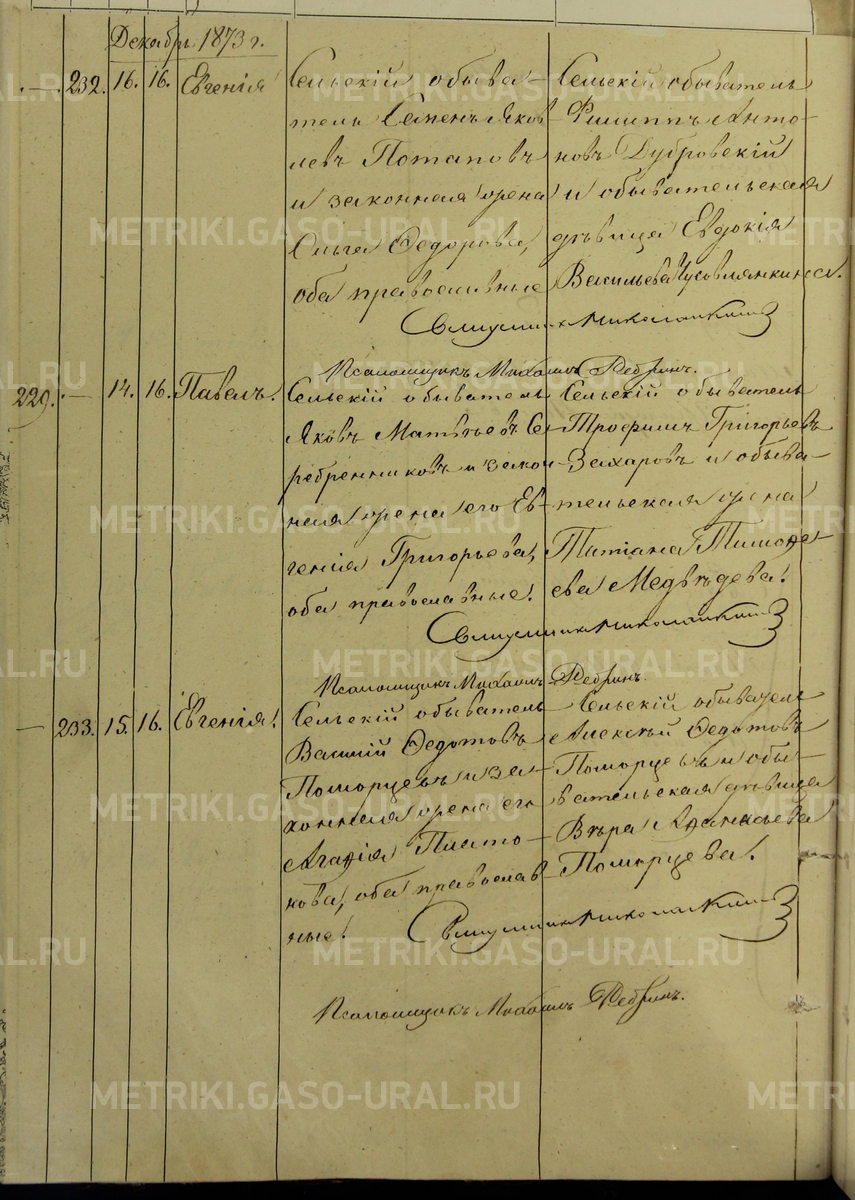 Декабрь 1873 г.
232. 16. 16. Евгенія
Сельскій обыва-
тель Семенъ Яков-
левъ Потаповъ
и законная жена
Ольга Ѳедорова,
оба православные
Сельскій обыватель
Филиппъ Анто-
новъ Дубровскій
и обывательская
дѣвица Евдокія
Васильева Чусовлянкина.
Псаломщикъ Михаилъ Ребринъ.
229. 14. 16. Павелъ.
Сельскій обыватель
Яковъ Матвѣевъ Се-
ребренниковъ и закон-
ная жена его Ев-
генія Григорьева,
оба православные.
Сельскій обыватель
Трофимъ Григорьевъ
Захаровъ и обыва-
тельская жена
Татіана Тимоѳе-
ева Медвѣдева.
Псаломщикъ Михаилъ Ребринъ.
233. 15. 16. Евгенія.
Сельскій обыватель
Василій Ѳедотовъ
Поморцевъ и за-
конная жена его
Агафія Плато-
нова, оба православ-
ные.
Сельскій обыватель
Алексѣй Ѳедотовъ
Поморцевъ и обы-
вательская дѣвица
Вѣра Аѳанасьева
Поморцева.
Псаломщикъ Михаилъ Ребринъ.
METRIKI.GASO-URAL.RU